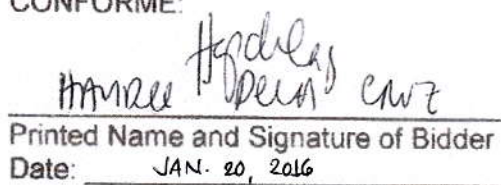 CONFORME:
DELA CRUZ
Printed Name and Signature of Bidder
Date: JAN. 20, 2016